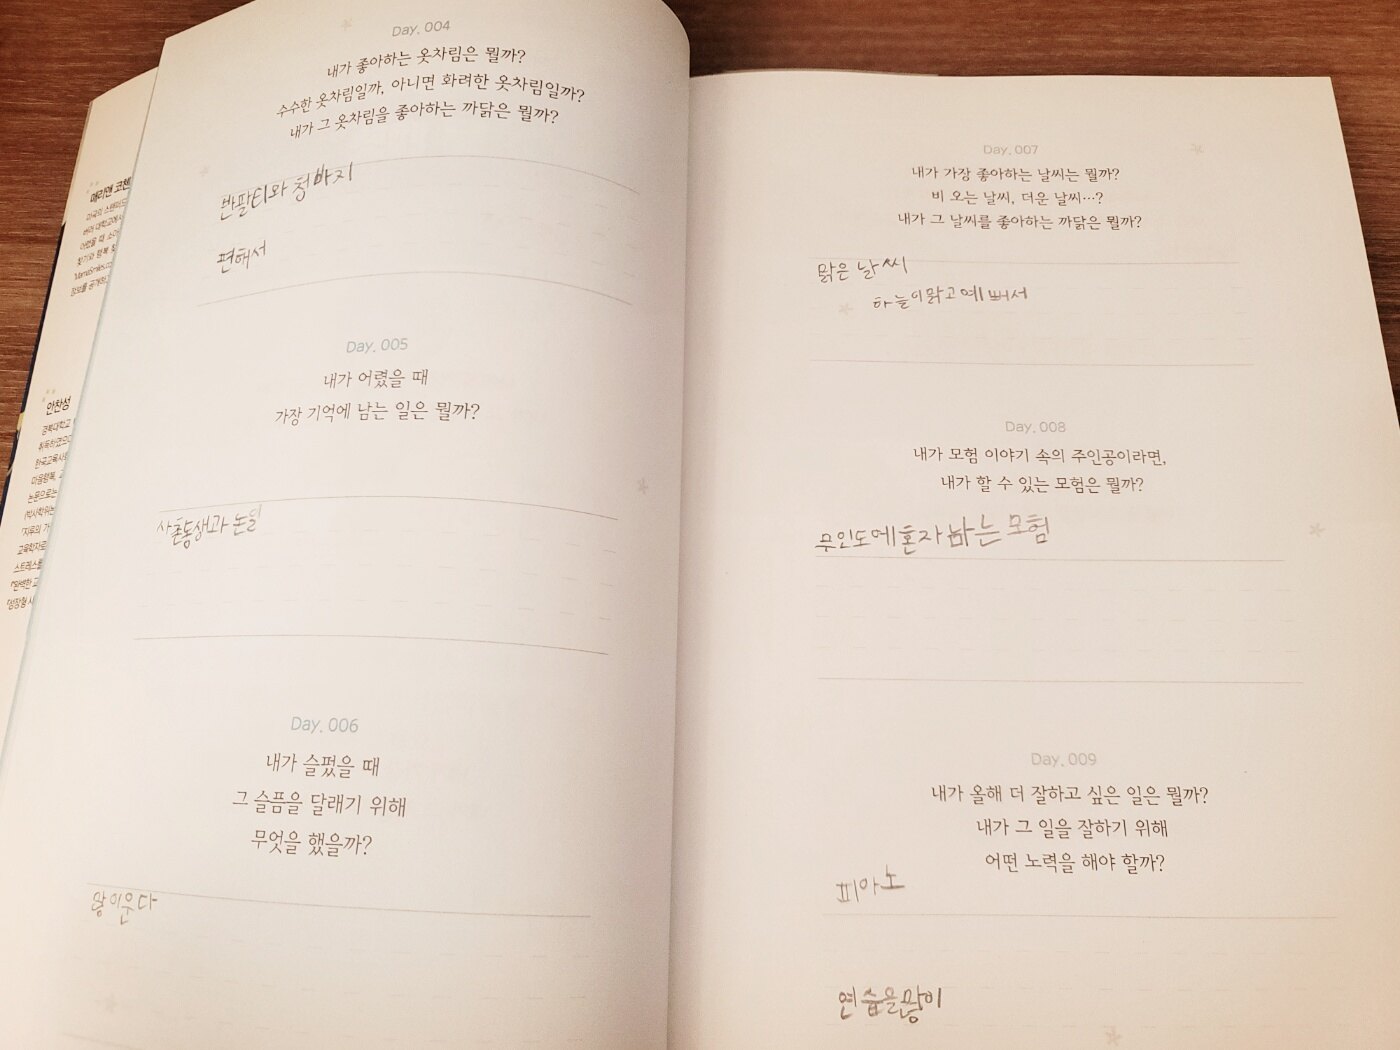 Day. 004
내가 좋아하는 옷차림은 뭘까?
수수한 옷차림일까, 아니면 화려한 옷차림일까?
내가 그 옷차림을 좋아하는 까닭은 뭘까?
반팔티와 청바지
편해서
Day. 005
내가 어렸을 때
가장 기억에 남는 일은 뭘까?
사촌동생과 논일
Day. 006
내가 슬펐을 때
그 슬픔을 달래기 위해
무엇을 했을까?
이운다
안찬성
경북대학교
Day. 007
내가 가장 좋아하는 날씨는 뭘까?
비 오는 날씨, 더운 날씨…?
내가 그 날씨를 좋아하는 까닭은 뭘까?
맑은 날씨
하늘이맑고예뻐서
Day. 008
내가 모험 이야기 속의 주인공이라면,
내가 할 수 있는 모험은 뭘까?
무인도에혼자남는모험
Day. 009
내가 올해 더 잘하고 싶은 일은 뭘까?
내가 그 일을 잘하기 위해
어떤 노력을 해야 할까?
피아노
연습을많이